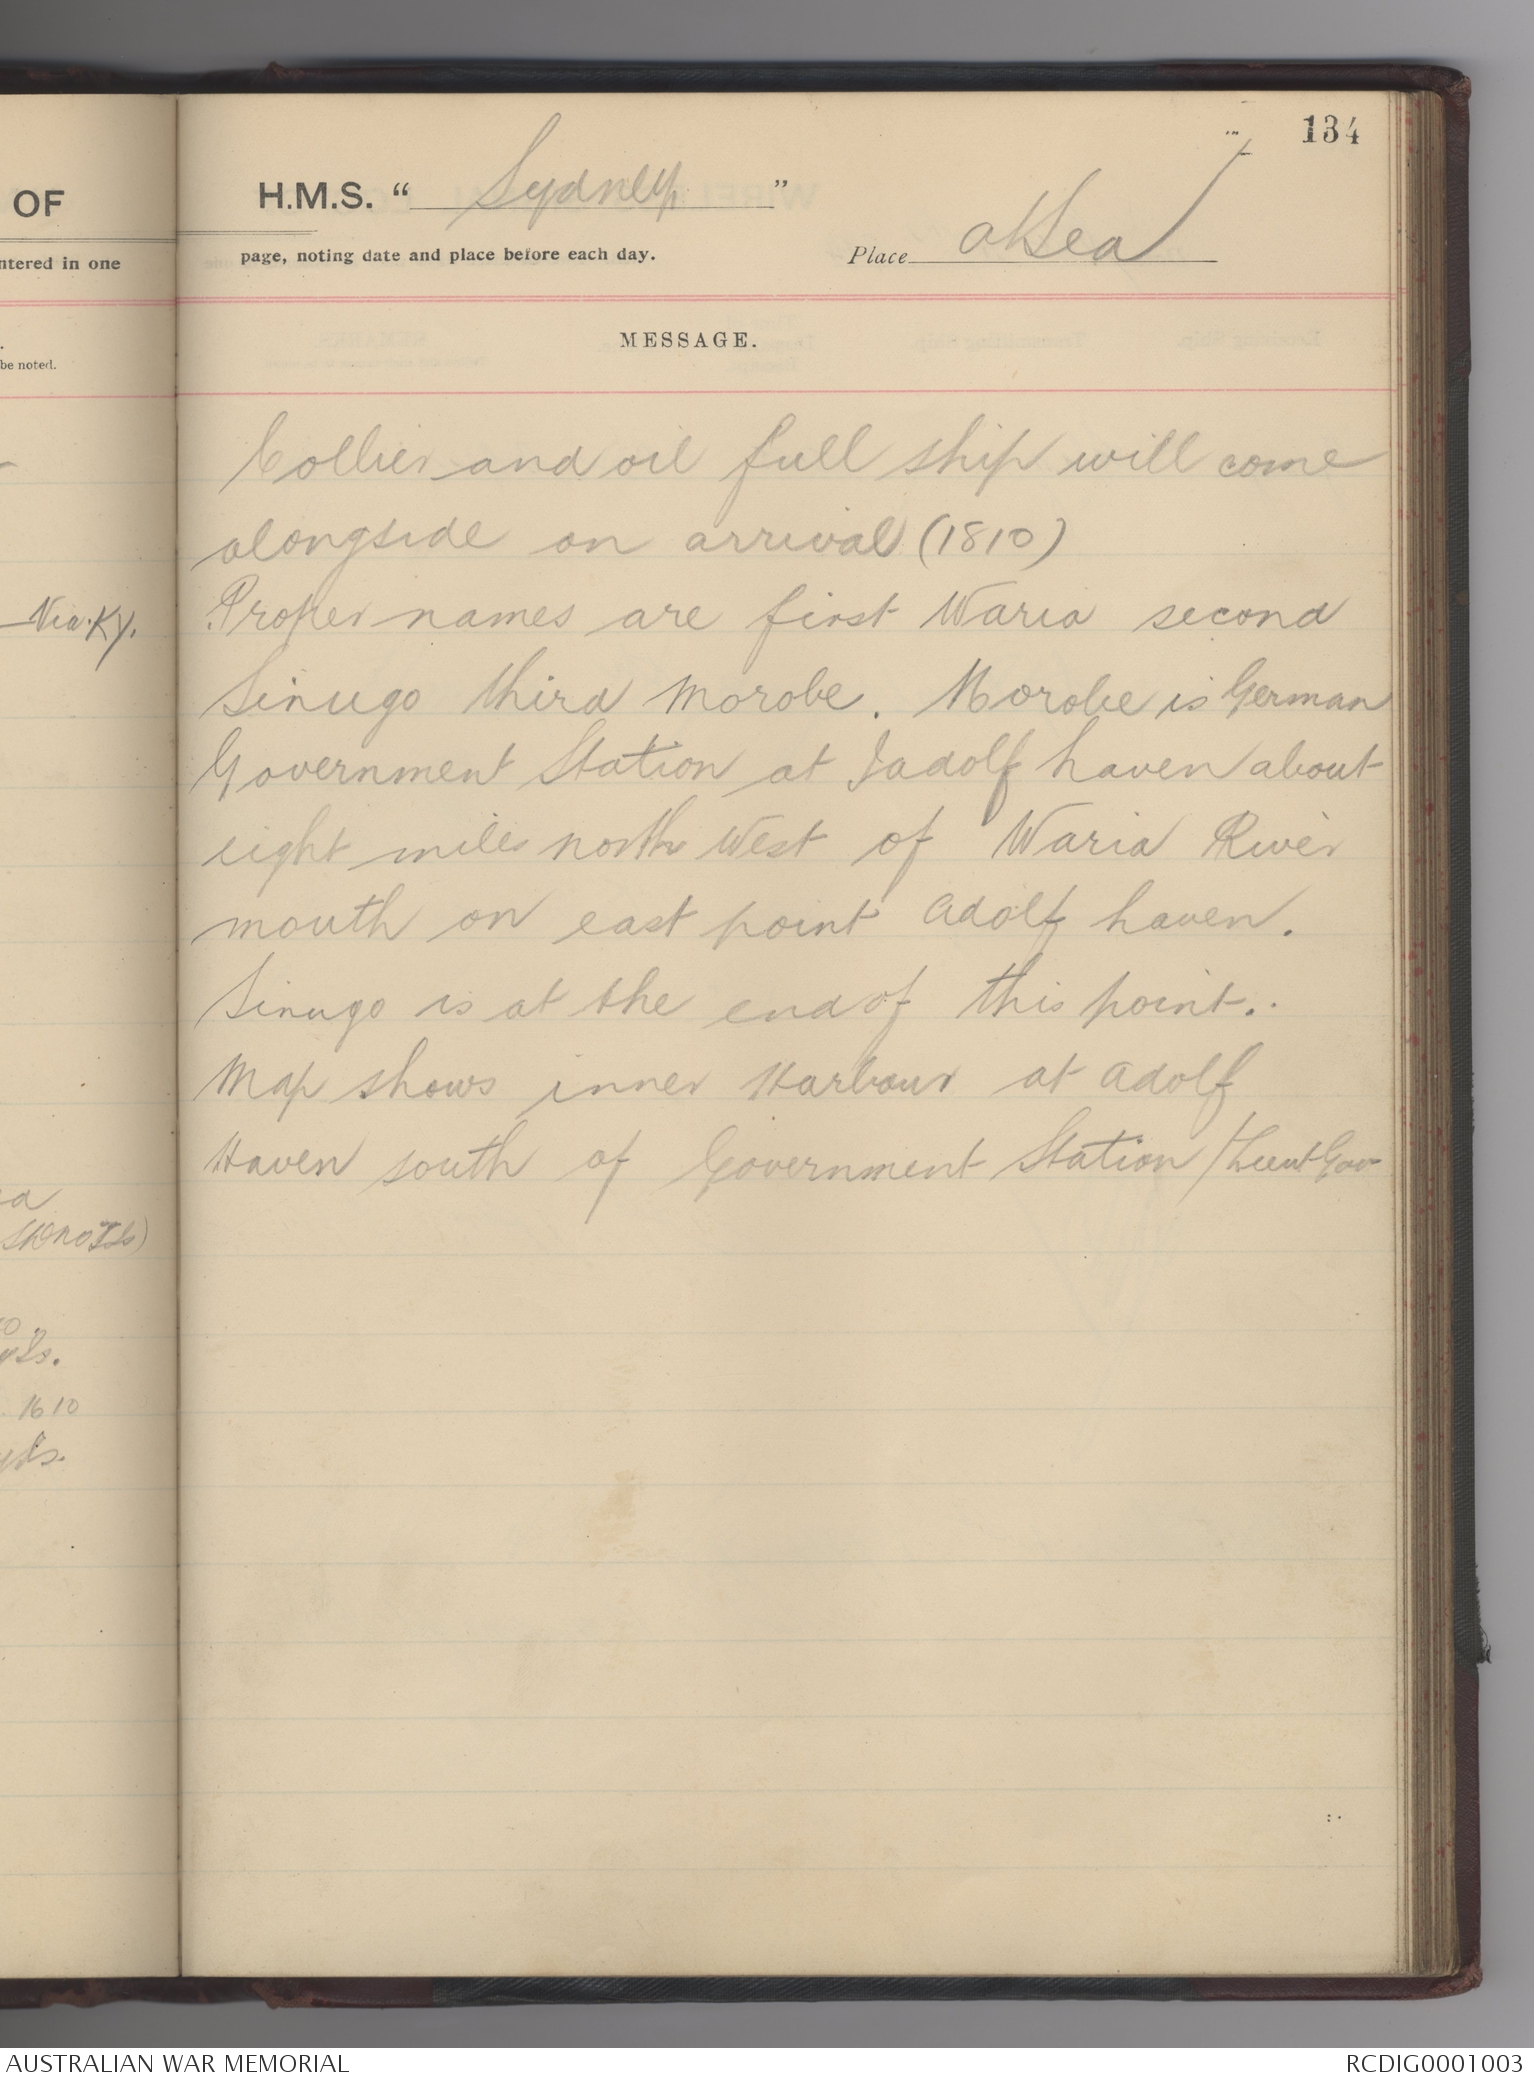 134
OF
H.M.S. “ Sydney ”
ntered in one
page, noting date and place before each day.
Place at Sea
MESSAGE.
be noted.
Collier and oil full ship will come
alongside on arrival (1810)
Via. KY.
Proper names are first Waria second
Sinugo third Morobe. Morobe is German
Government Station at Jadolf haven about
eight miles north West of Waria River
mouth on east point adolf haven.
Sinugo is at the end of this point.
Map shows inner Harbour at adolf
Haven south of Government Station / Lieut Gov
1610
AUSTRALIAN WAR MEMORIAL
RCDIG0001003